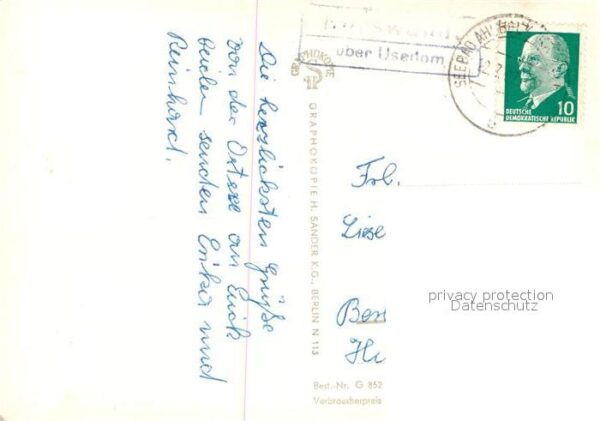 Die herzlichsten Grüße
von der Ostsee an Euch
beiden senden Erika und
Reinhard.
GRAPHOKOPIE
GRAPHOKOPIE H. SANDER K.G., BERLIN N 113
über Usedom
SEEBAD AHLBECK
DEUTSCHE
DEMOKRATISCHE REPUBLIK
10
Frl.
Liese
privacy protection
Datenschutz
Best.-Nr. G 852
Verbraucherpreis